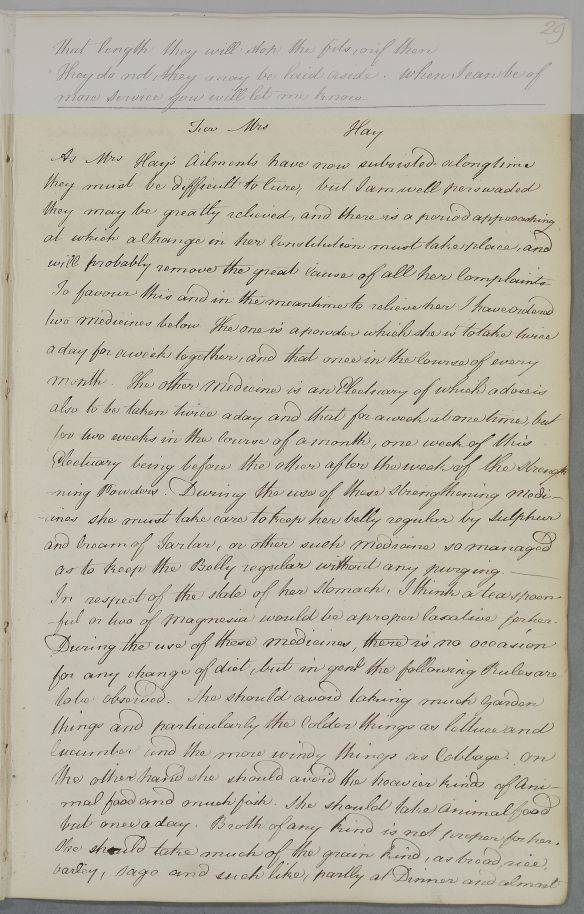 29
that length they will stop the fits, or if then
They do not, they may be laid aside. When I can be of
more service you will let me know
For Mrs Hay
As Mrs Hay's Ailments have now subsisted a long time
they must be difficult to Cure, but I am well perswaded
they may be greatly relieved, and there is a period approaching
at which a Change in her Constitution must take place, and
will probably remove the great Cause of all her Complaints
To favour this and in the meantime to relieve her I have ordered
two medicines below The one is a powder which she is to take twice
a day for a week together, and that once in the Course of every
month. The other Medicine is an Electuary of which a dose is
also to be taken twice a day and that for a week at one time, but
for two weeks in the Course of a month, one week of this
Electuary being before the other after the week of the strength
ning Powders. During the use of these strengthening Medi-
-cines she must take care to keep her belly regular by Sulphur
and Cream of Tartar, or other such medicine so managed
as to keep the Belly regular without any purging.
In respect of the state of her Stomach, I think a teaspoon-
-ful or two of Magnesia would be a proper laxative for her.
During the use of these medicines, there is no occasion
for any change of diet, but in genl the following Rules are
to be observed. She should avoid taking much Garden
things and particularly the Colder things as lettuce and
Cucumber and the more windy things as Cabbage. on
the other hand she should avoid the heavier kinds of Ani-
mal food and much fish. She should take animal food
but once a day. Broth of any kind is not proper for her.
She should take much of the grain kind, as bread, rice,
barley, sago and such like, partly at Dinner and almost